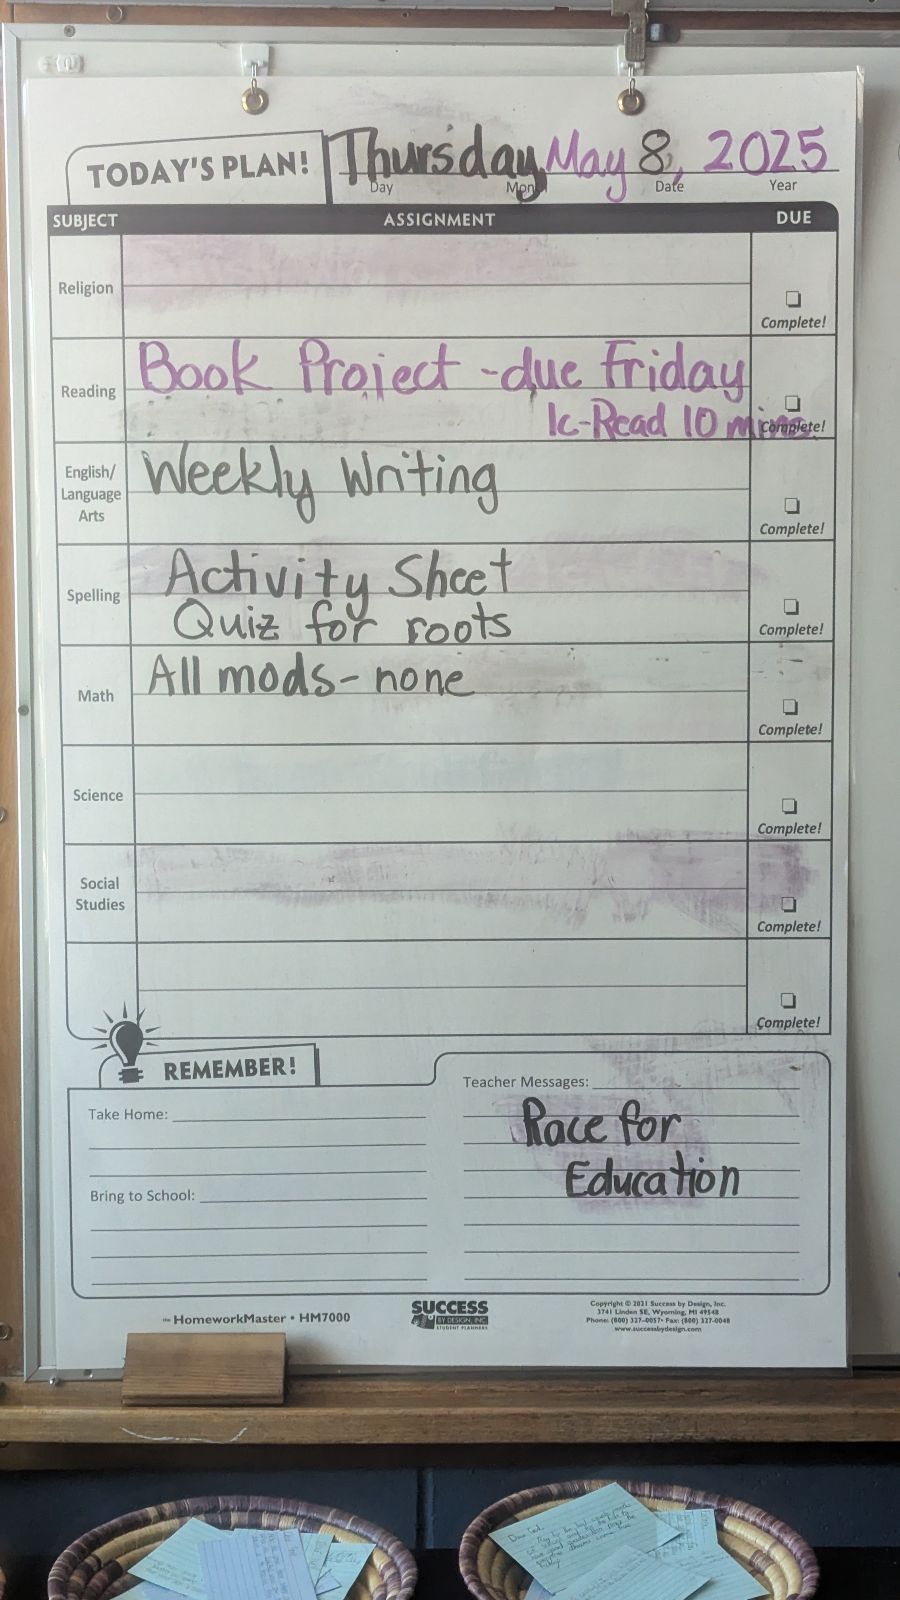 TODAY'S PLAN!
Thursday May 8, 2025
Day Month Date Year
SUBJECT ASSIGNMENT DUE
Religion
Complete!
Reading
Book Project - due Friday
Ic-Read 10 mins.
Complete!
English/
Language
Arts
Weekly Writing
Complete!
Spelling
Activity Sheet
Quiz for roots
Complete!
Math
All mods - none
Complete!
Science
Complete!
Social
Studies
Complete!
Complete!
REMEMBER!
Take Home:
Bring to School:
Teacher Messages:
Race for
Education
the HomeworkMaster • HM7000
SUCCESS
BY DESIGN, INC.
STUDENT PLANNERS
Copyright © 2021 Success by Design, Inc.
3741 Linden SE, Wyoming, MI 49548
Phone: (800) 327-0057• Fax: (800) 327-0048
www.successbydesign.com
Dear God,